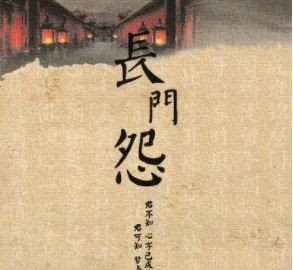 長門怨
君不知 心字已成
君可知